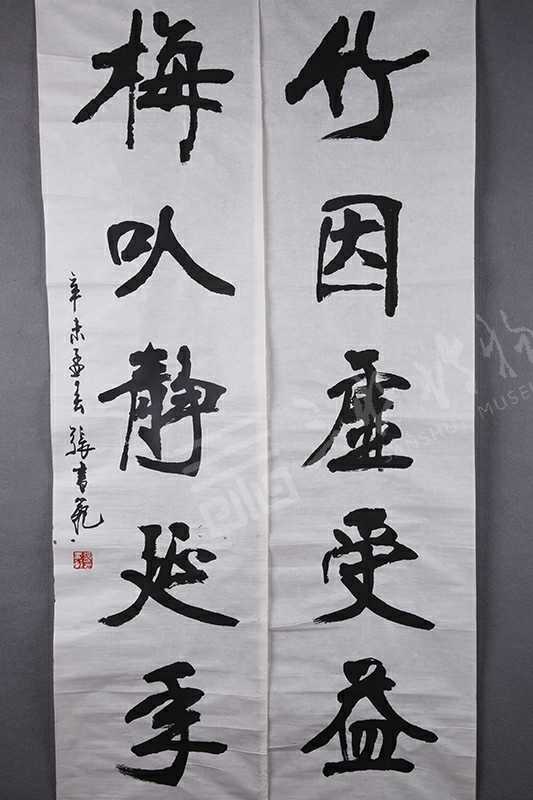 竹因虛受益
梅以静延年
辛未孟春 張書範
MUSE